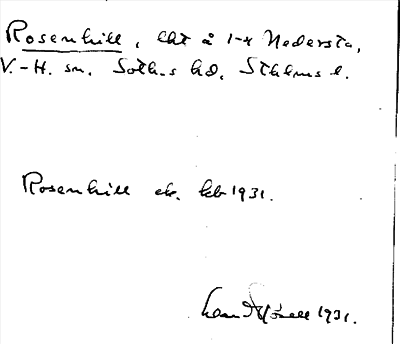 Rosenhill, lht å 1-4 Nedersta,
V.-H. sn. Soth.s hd, Sthlms l.
Rosenhill ek. kb 1931.
1931.